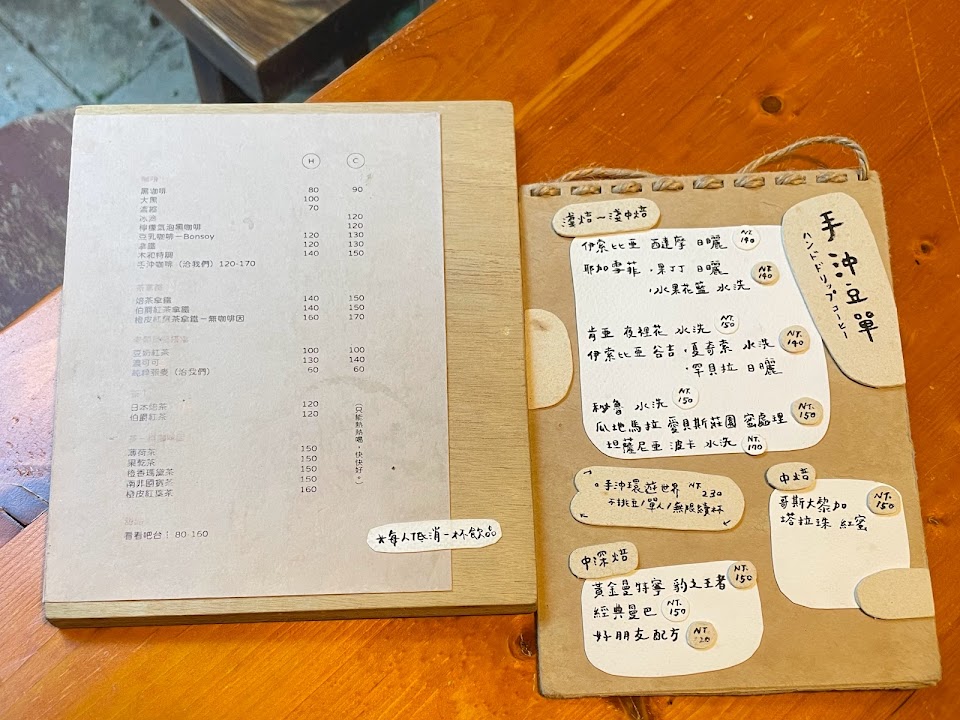 H C
咖啡
黑咖啡 80 90
大黑 100
濃縮 70
冰滴 120
檸檬氣泡黑咖啡 120
豆乳咖啡－Bonsoy 120 130
拿鐵 120 130
木和特調 140 150
手沖咖啡（洽我們）120-170
焙茶拿鐵 140 150
伯爵紅茶拿鐵 140 150
橙皮紅葉茶拿鐵－無咖啡因 160 170
100 100
濃可可 130 140
（洽我們） 60 60
日本焙茶 120
伯爵紅茶 120
(只能熱熱喝，快快好。)
薄荷茶 150
果乾茶 150
橙香瑪黛茶 150
南非國寶茶 150
橙皮紅葉茶 160
看看吧台！80-160
*每人低消一杯飲品
手沖豆單
ハンドドリップコーヒー
淺焙～淺中焙
伊索比亞 西達摩 日曬 NT. 140
耶加雪菲．果丁丁 日曬 NT. 140
．水果花籃 水洗
肯亞 夜裡花 水洗 NT. 150
伊索比亞 谷吉．夏奇索 水洗 NT. 140
．罕貝拉 日曬
秘魯 水洗 NT. 150
瓜地馬拉 愛貝斯莊園 蜜處理 NT. 150
坦薩尼亞 波卡 水洗 NT. 170
。手沖環遊世界 NT. 230
不挑豆/單人/無限續杯
中焙
哥斯大黎加 NT. 150
塔拉珠 紅蜜
中深焙
黃金曼特寧 豹之王者 NT. 150
經典曼巴 NT. 150
好朋友配方 NT.